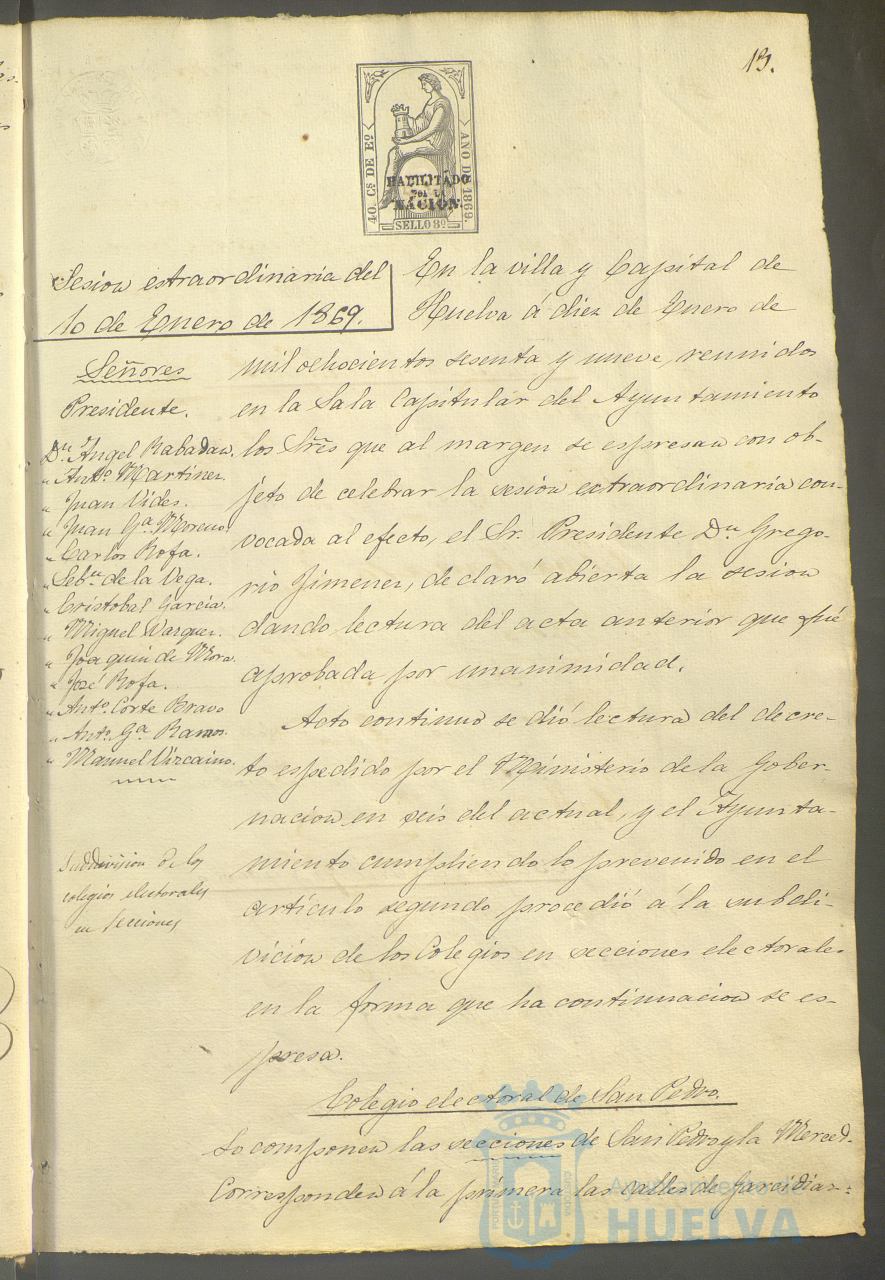 13.
40. Cs DE Eo
AÑO DE 1869.
HABILITADO
POR LA
NACION.
SELLO 8º
Sesion estraordinaria del
10 de Enero de 1869.
Señores
Presidente.
Dn. Ángel Rabadan.
" Anto. Martinez.
" Juan Vides.
" Juan Ga. Moreno.
" Carlos Rofa.
" Sebn. de la Vega.
" Cristobal Garcia.
" Miguel Vazquez.
" Joaquin de Mora.
" José Rofa.
" Anto. Corte Bravo
" Anto. Ga. Ramos.
" Manuel Vizcaino.
Subdivision de los
colegios electorales
en secciones
En la villa y Capital de
Huelva á diez de Enero de
mil ochocientos sesenta y nueve, reunidos
en la Sala Capitular del Ayuntamiento
los Sres que al margen se espresan con ob-
jeto de celebrar la sesion extraordinaria con-
vocada al efecto, el Sr. Presidente Dn. Grego-
rio Jimenez, declaró abierta la sesion
dando lectura del acta anterior que fué
aprobada por unanimidad.
Acto continuo se dió lectura del decre-
to espedido por el Ministerio de la Gober-
nacion en seis del actual, y el Ayunta-
miento cumpliendo lo prevenido en el
artículo segundo procedió á la subdi-
vicion de los Colegios en secciones electorales
en la forma que ha continuacion se es-
presa.
Colegio electoral de San Pedro.
Lo componen las secciones de San Pedro y la Merced.
Corresponden á la primera las calles de Garcidiaz:
Ayuntamiento de
HUELVA